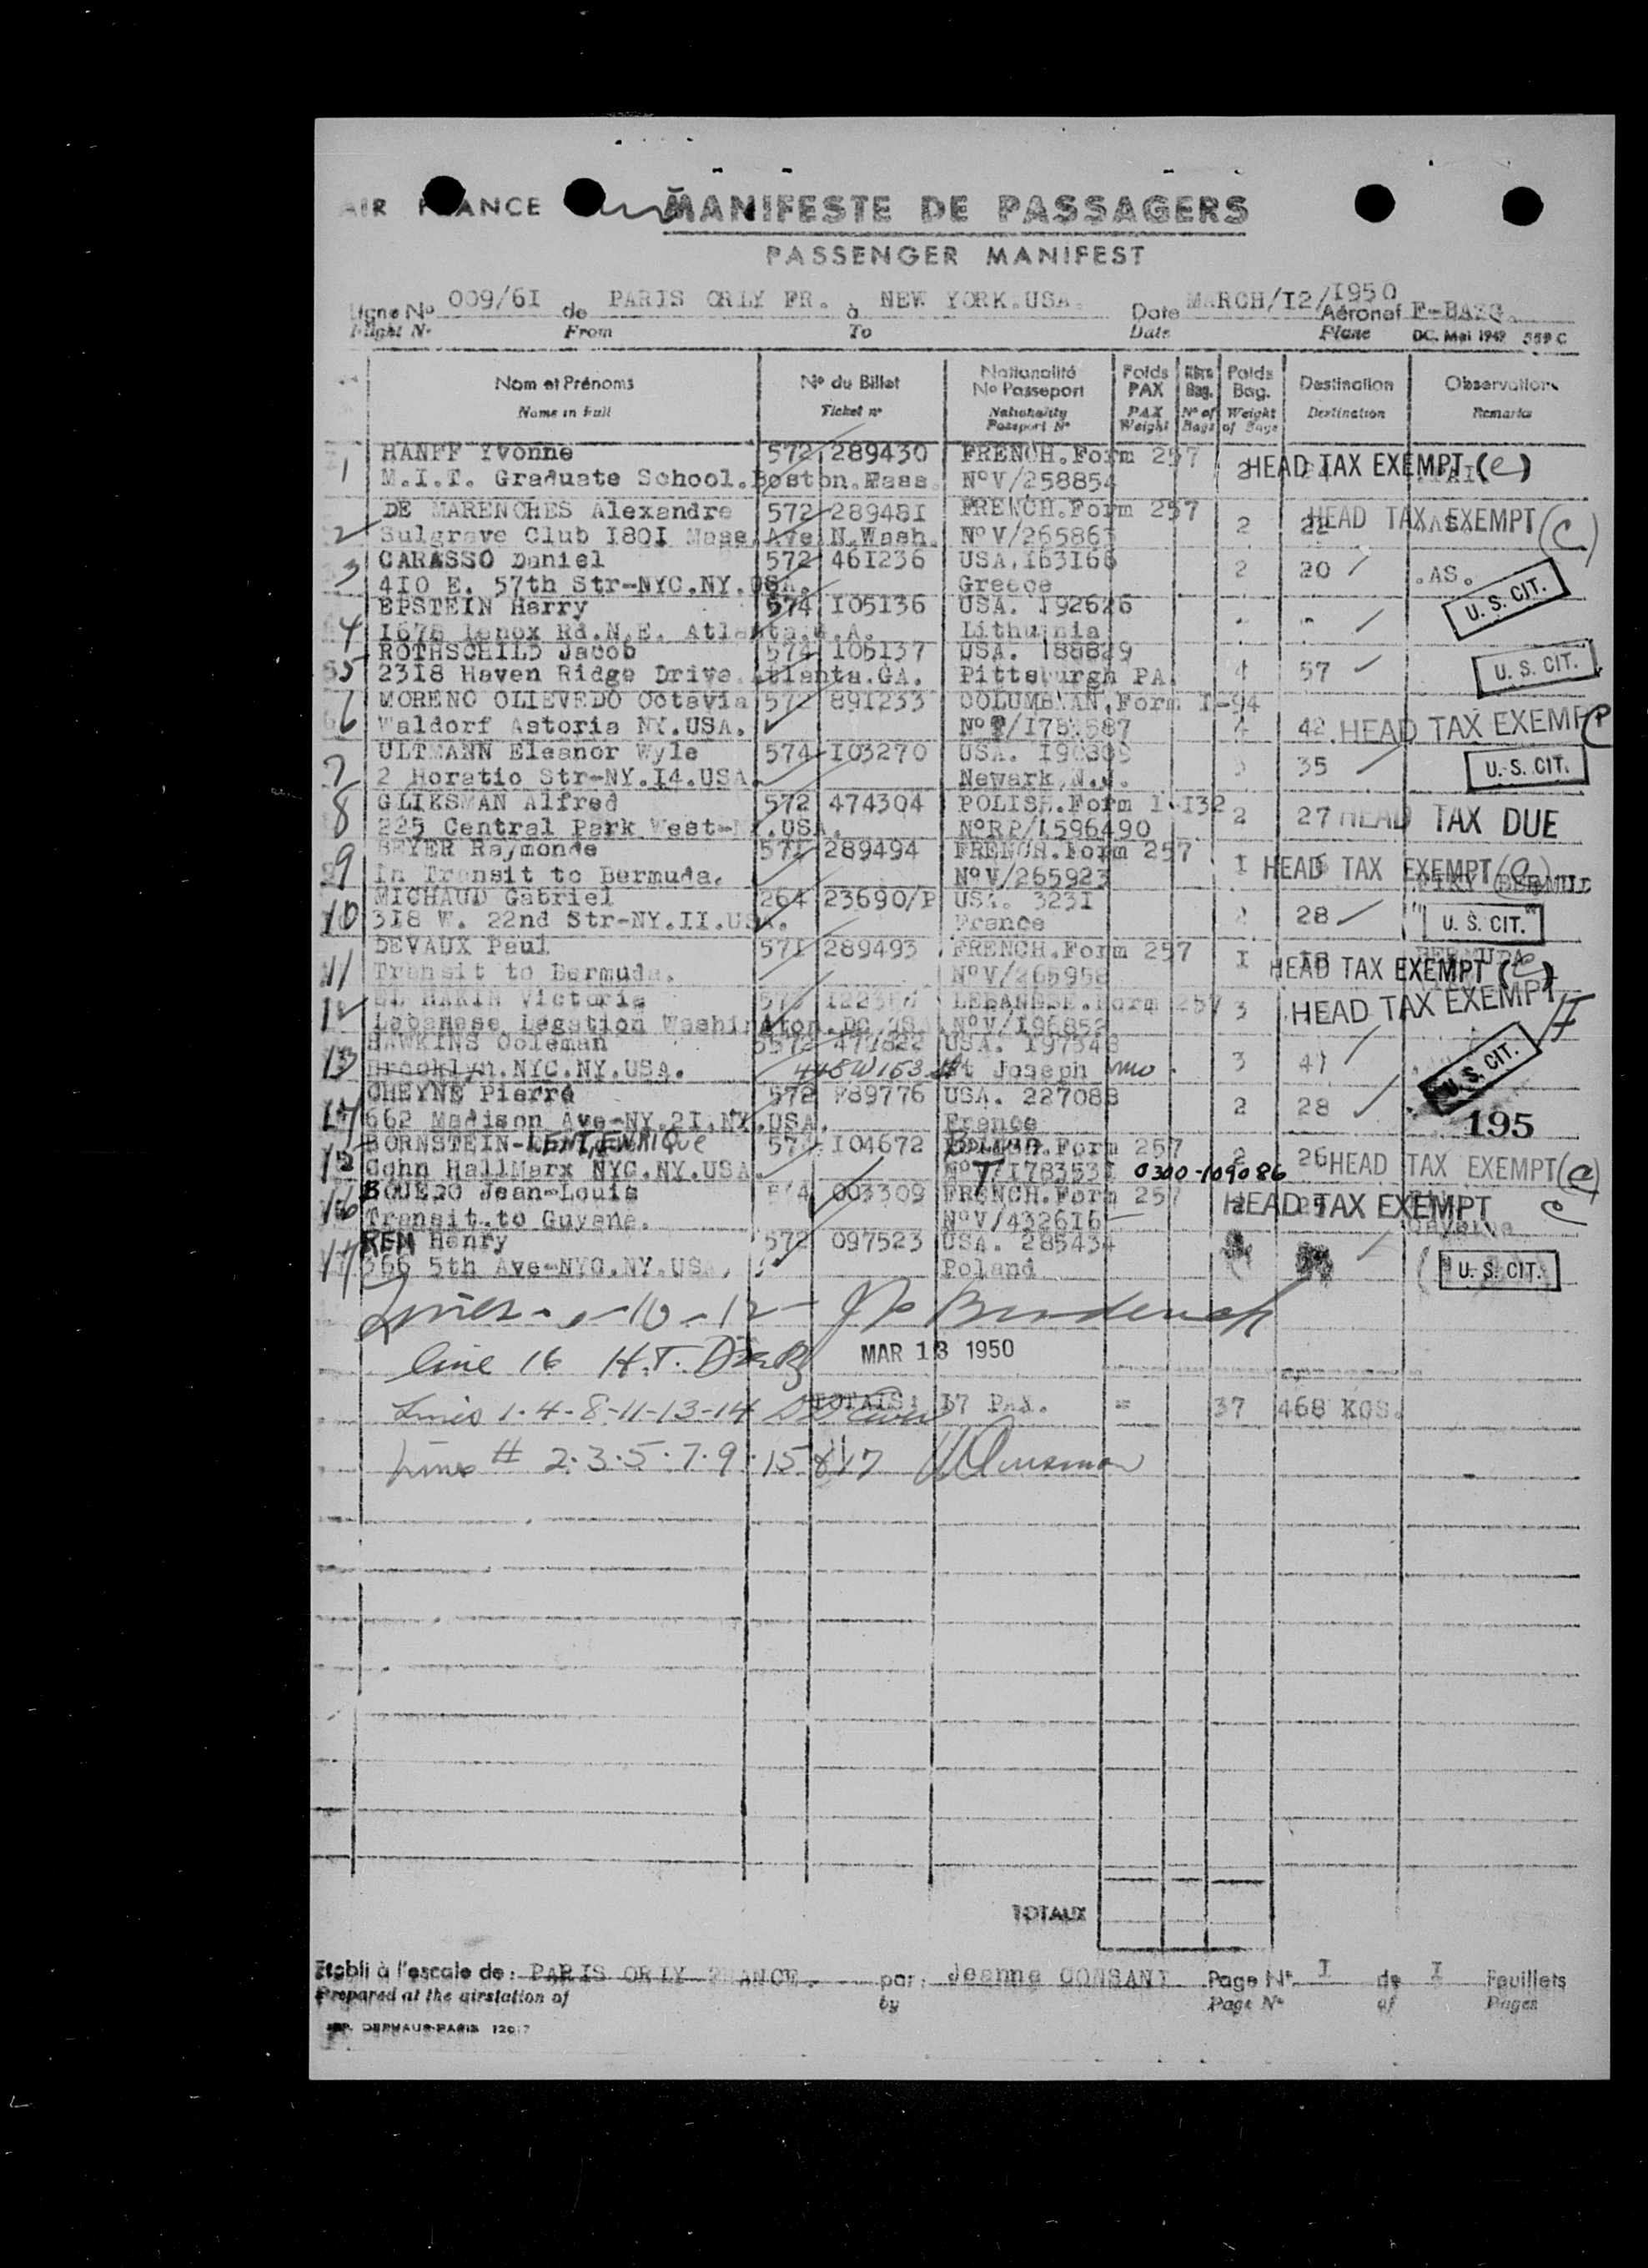 AIR FRANCE
MANIFESTE DE PASSAGERS
PASSENGER MANIFEST
Ligne No 009/6I de PARIS ORLY FR. à NEW YORK.USA. Date MARCH/I2/I950 Aéronef
Flight N° From To Date Plane DC. Mai 1949 559 C
Nom et Prénoms No du Billet Nationalité No Passeport Poids PAX Nbre Bag. Poids Bag. Destination Observations
Name in Full Ticket n° Nationality Passport N° PAX Weight N° of Bags Weight of Bags Destination Remarks
1 HANFF Yvonne 572 289430 FRENCH.Form 257 2 HEAD TAX EXEMPT (e)
M.I.T. Graduate School.Boston.Mass. N°V/258854
2 DE MARENCHES Alexandre 572 28948I FRENCH.Form 257 2 22 HEAD TAX EXEMPT (c)
Sulgrave Club I80I Mass.Ave.N.Wash. N°V/265863
3 CARASSO Daniel 572 46I236 USA.I63I66 2 20 .AS. U. S. CIT.
4IO E. 57th Str-NYC.NY.USA. Greece
4 EPSTEIN Harry 574 I05I36 USA. I92626
I678 Lenox Rd.N.E. Atlanta.G.A. Lithuania
5 ROTHSCHILD Jacob 574 I05I37 USA. I88829 4 57 U. S. CIT.
23I8 Haven Ridge Drive.Atlanta.GA. Pittsburgh PA.
6 MORENO OLIEVEDO Octavia 572 89I233 COLUMBIAN.Form I-94 4 42. HEAD TAX EXEMP
Waldorf Astoria NY.USA.
7 ULTMANN Eleanor Wyle 574 I03270 USA. 35 U. S. CIT.
2 Horatio Str-NY.I4.USA. Newark,N.J.
8 GLIKSMAN Alfred 572 474304 POLISH.Form I-I32 2 27 HEAD TAX DUE
225 Central Park West-NY.USA. N°RP/I596490
9 BEYER Raymonde 57I 289494 FRENCH.Form 257 I HEAD TAX EXEMPT (e)
In Transit to Bermuda. N°V/265923
10 MICHAUD Gabriel 264 23690/P USA. 323I 28 U. S. CIT.
3I8 W. 22nd Str-NY.II.USA. France
11 DEVAUX Paul 57I 289493 FRENCH.Form 257 I BERMUDA HEAD TAX EXEMPT (e)
Transit to Bermuda. N°V/265958
12 EL HAKIM Victoria LEBANESE.Form 257 3 HEAD TAX EXEMPT
Lebanese Legation Washington.DC.USA. N°V/I96852
13 HAWKINS Coleman 572 USA. I97348 3 41 U. S. CIT.
Brooklyn.NYC.NY.USA. 448 W 153 St Joseph mo.
14 CHEYNE Pierre 572 F89776 USA. 227088 2 28
662 Madison Ave-NY.2I.NY.USA. France 195
15 BORNSTEIN-LENT, ENRIQUE 574 I04672 Form 257 2 26 HEAD TAX EXEMPT (a)
Cohn HallMarx NYC.NY.USA. 0300-109086
16 BOUEDO Jean-Louis 574 003309 FRENCH.Form 257 HEAD TAX EXEMPT c
Transit.to Guyane. N°V/4326I6
17 REM Henry 572 097523 USA. 285434
366 5th Ave-NYC.NY.USA. Poland U. S. CIT.
Lines 10 - 12
line 16 H.T. MAR 13 1950
Lines 1-4-8-11-13-14 TOTALS: I7 PAX. = 37 468 KOS.
Lines # 2.3.5.7.9.15 & 17
TOTAUX
Etabli à l'escale de: PARIS ORLY FRANCE. par: Jeanne CONSANI Page N° I de I Feuillets
Prepared at the airstation of by Page N° of Pages
IMP. DERMAUR-PARIS 12017